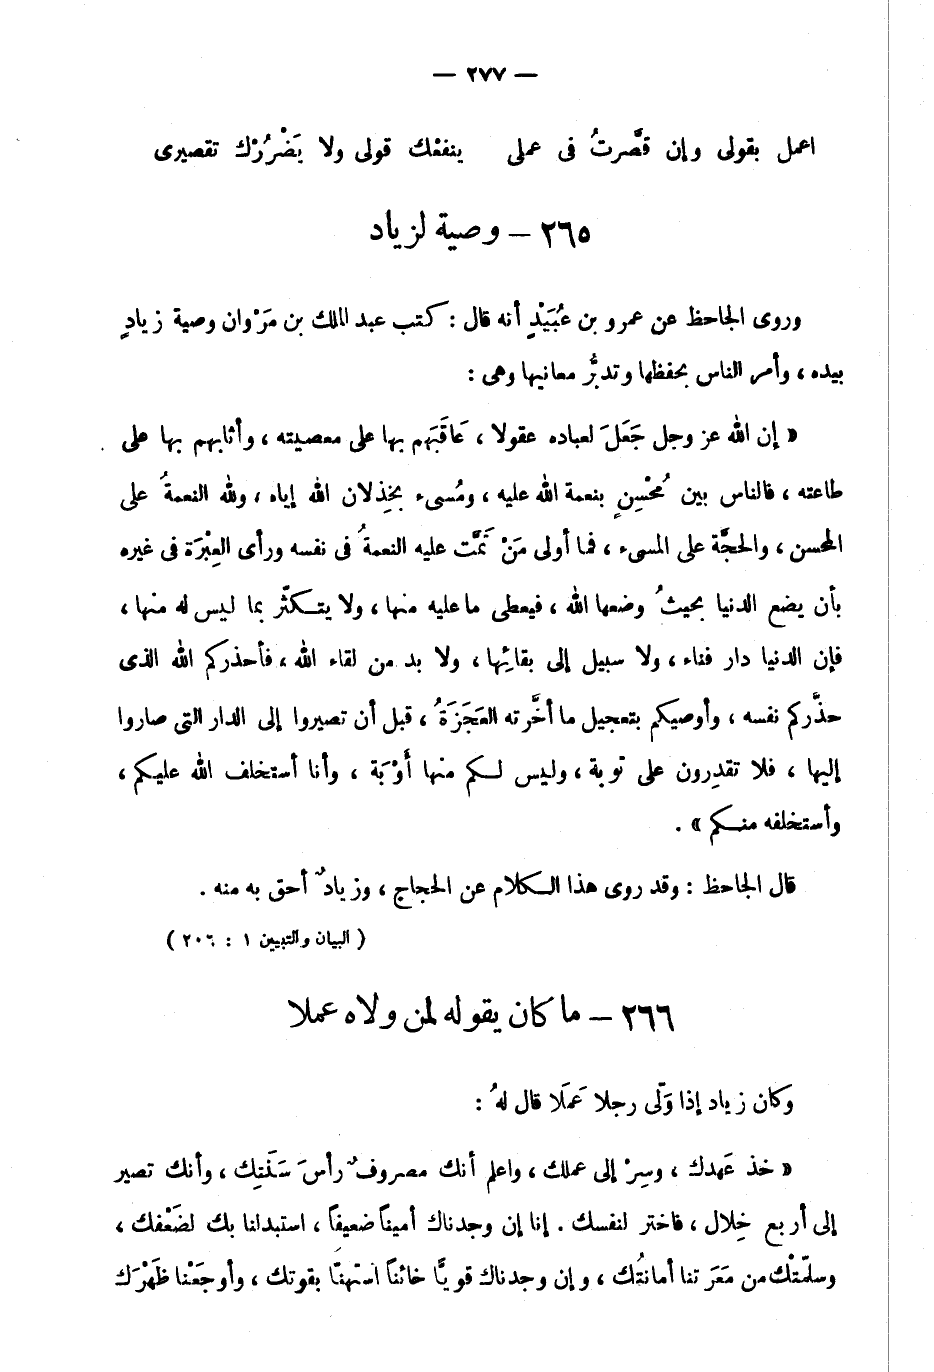 — ٢٧٧ —
اعمل بقولى وإن قصَّرتُ فى عملى ينفعْك قولى ولا يَضْرُرْك تقصيرى
٢٦٥ – وصية لزياد
وروى الجاحظ عن عمرو بن عُبَيْدٍ أنه قال : كتب عبد الملك بن مَرْوان وصية زيادٍ
بيده ، وأمر الناس بحفظها وتدبُّر معانيها وهى :
« إن الله عز وجل جَعَلَ لعباده عقولا ، عَاقَبَهم بها على معصيته ، وأثابهم بها على
طاعته ، فالناس بين مُحْسِنٍ بنعمة الله عليه ، ومُسىء بخِذلان الله إياه ، ولله النعمةُ على
المحسن ، والحجَّة على المسىء ، فما أولى مَنْ تَمَّت عليه النعمةُ فى نفسه ورأى العِبْرَة فى غيره
بأن يضع الدنيا بحيثُ وضعها الله ، فيعطى ما عليه منها ، ولا يتكثّر بما ليس له منها ،
فإن الدنيا دار فناء ، ولا سبيل إلى بقائِها ، ولا بد من لقاء الله ، فأحذركم الله الذى
حذَّركم نفسه ، وأوصيكم بتعجيل ما أخَّرته العَجَزَةُ ، قبل أن تصيروا إلى الدار التى صاروا
إليها ، فلا تقدِرون على توبة ، وليس لكم منها أَوْبَة ، وأنا أستخلف الله عليكم ،
وأستخلفه منكم » .
قال الجاحظ : وقد روى هذا الكلام عن الحجاج ، وزيادٌ أحق به منه .
( البيان والتبيين ١ : ٢٠٦ )
٢٦٦ – ما كان يقوله لمن ولاه عملا
وكان زياد إذا وَلّى رجلا عَمَلَا قال لهُ :
« خذ عَهدك ، وسِرْ إلى عملك ، واعلم أنك مصروفٌ رأسَ سَنَتِك ، وأنك تصير
إلى أربع خِلال ، فاختر لنفسك . إنا إن وجدناك أميناً ضعيفاً ، استبدلنا بك لضَعْفك ،
وسلَّمتْك من مَعَرتنا أمانتُك ، وإن وجدناك قويًّا خائناً استَهنَّا بقوتك ، وأوجَعْنا ظَهْرَك